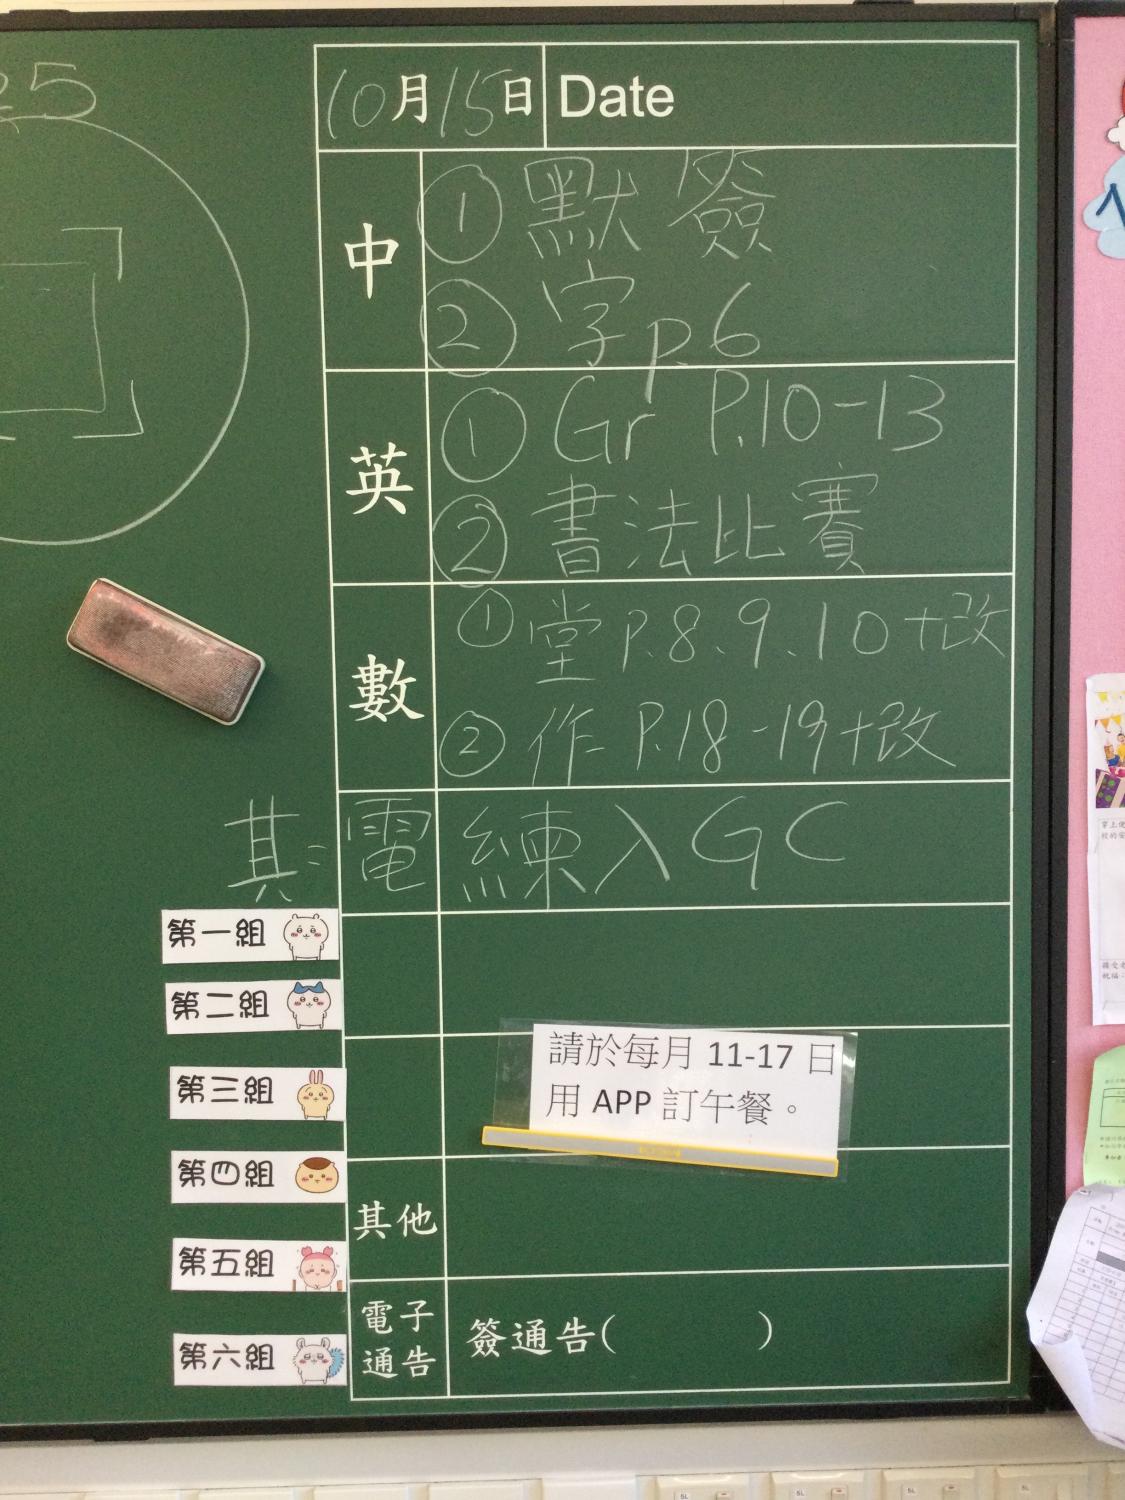 10月15日 Date
中
① 默簽
② 字p.6
英
① Gr P.10-13
② 書法比賽
數
① 堂P.8、9、10+改
② 作P.18-19+改
其:電練入GC
第一組
第二組
第三組
第四組
第五組
第六組
請於每月 11-17 日
用 APP 訂午餐。
其他
電子
通告
簽通告( )